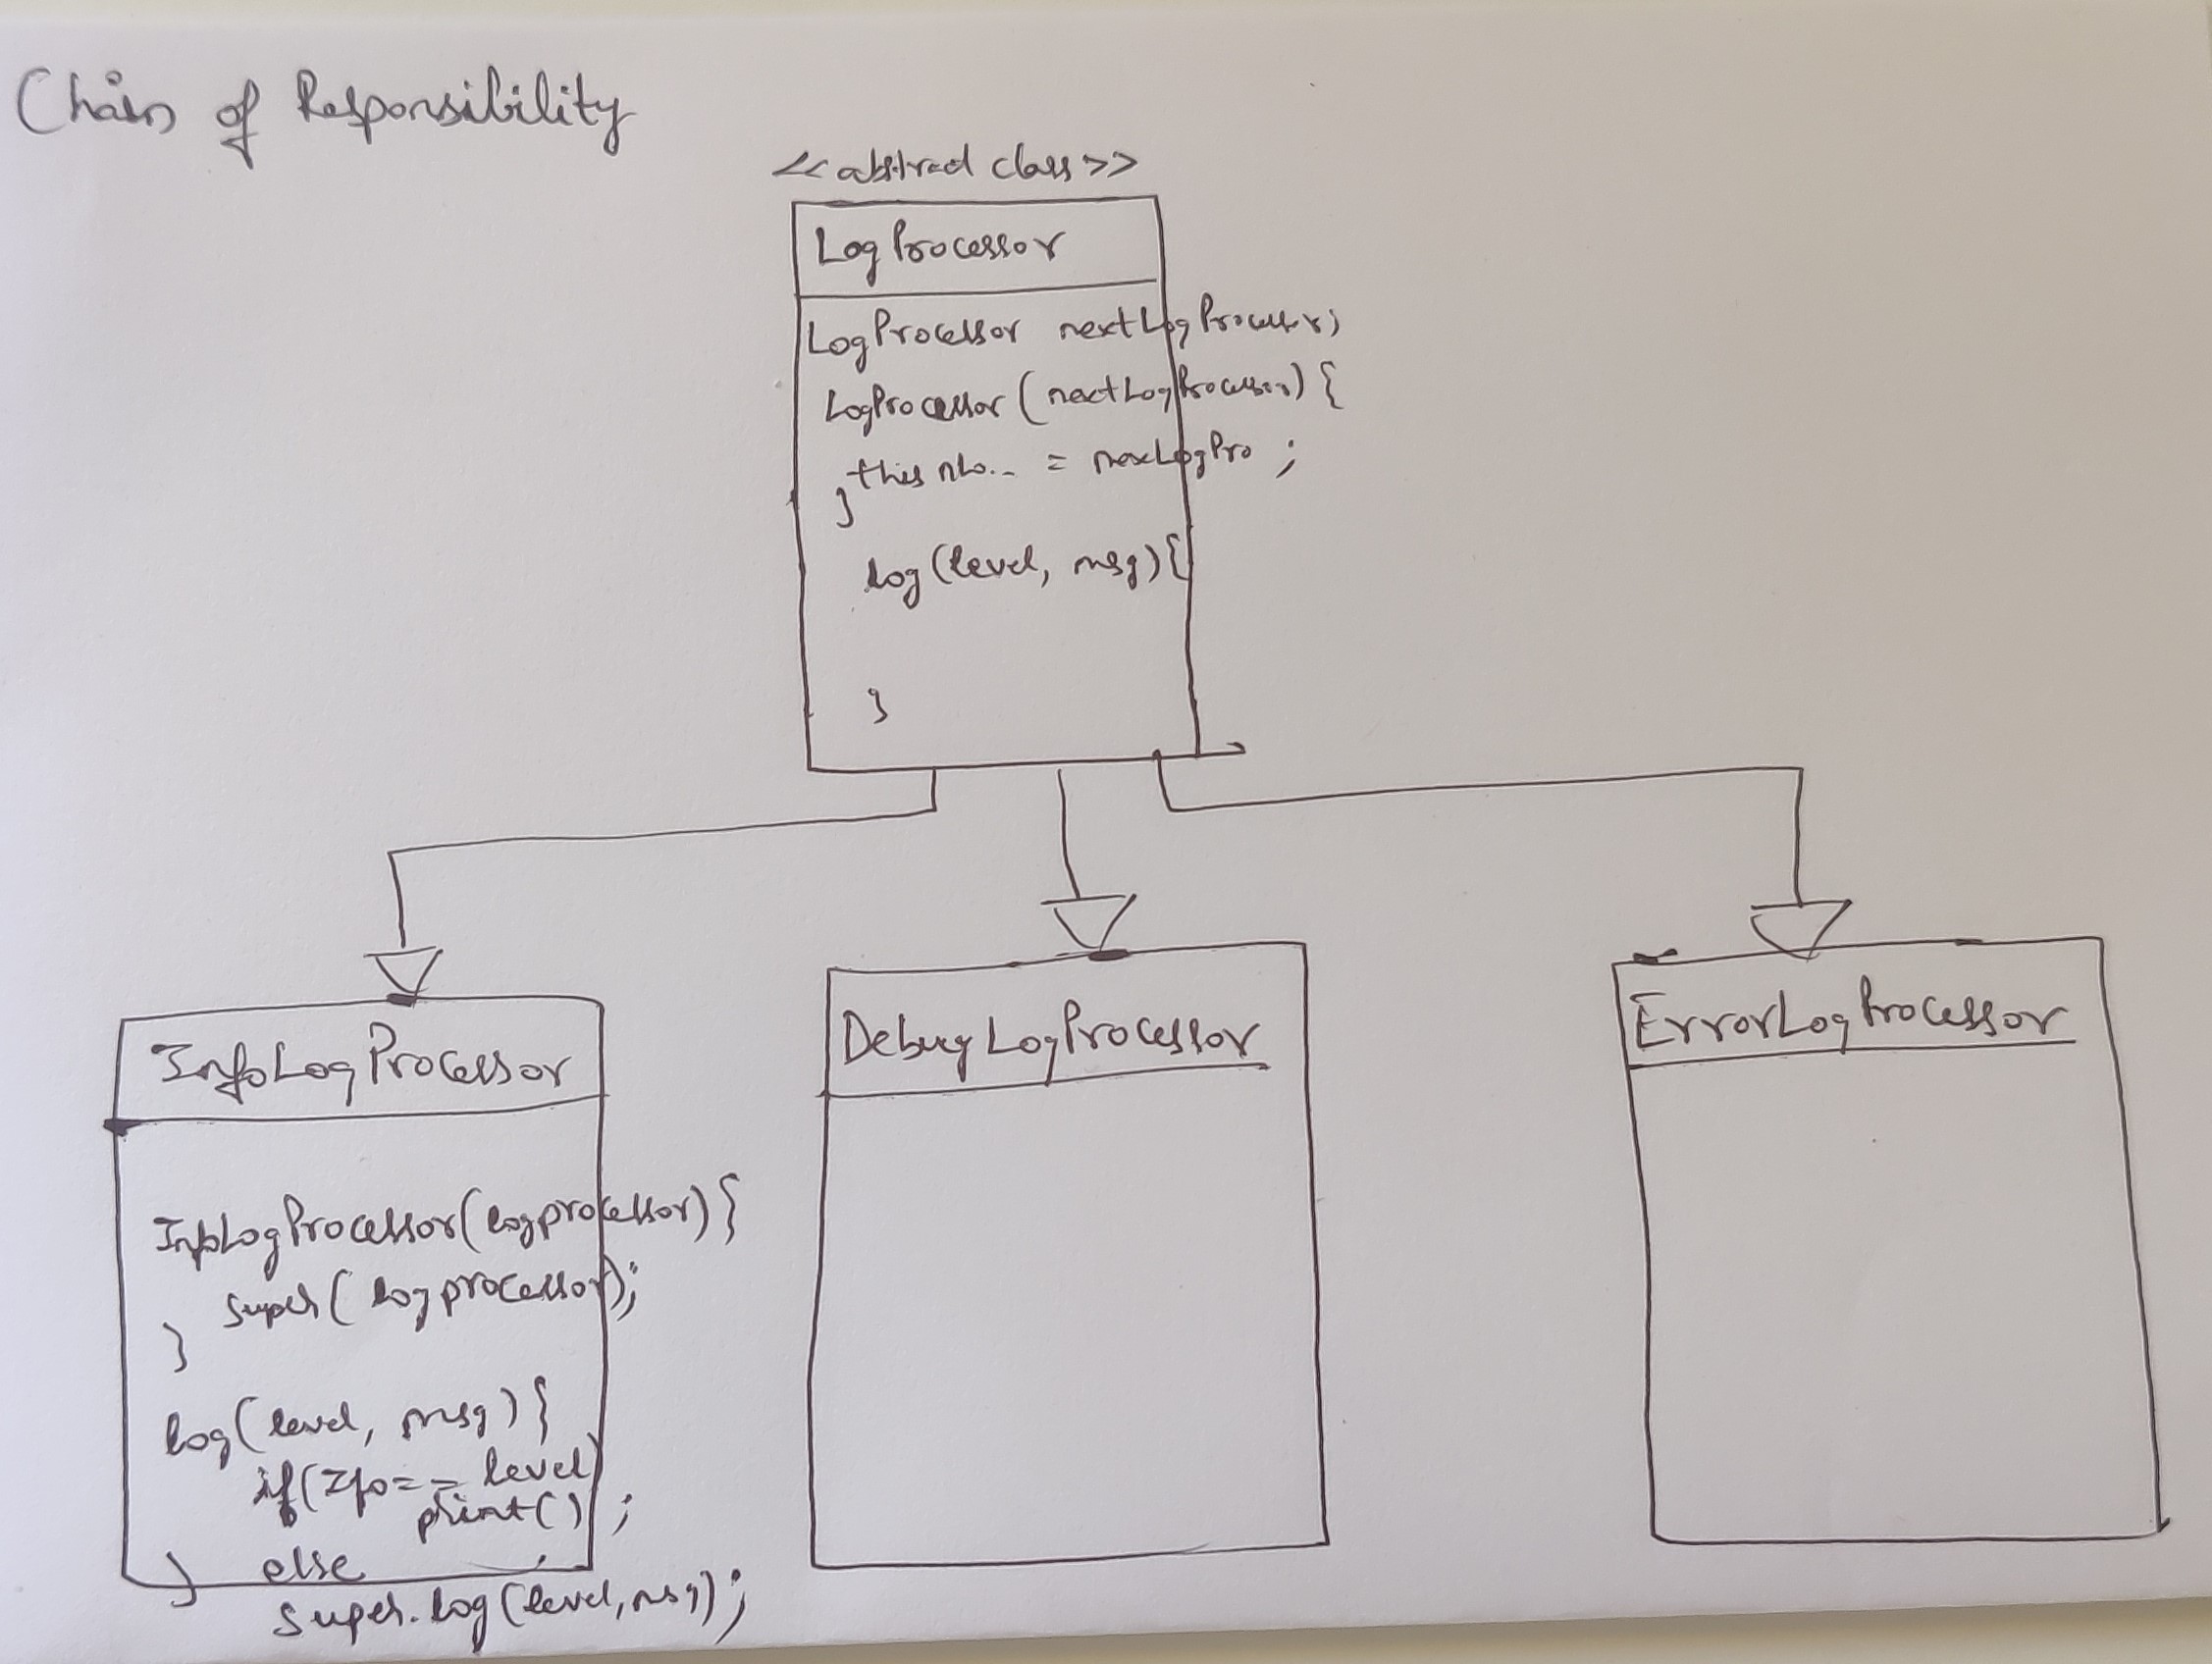 Chain of Responsibility
<<abstract class>>
LogProcessor
LogProcessor nextLogProcessor;
LogProcessor (nextLogProcessor) {
this nLo.. = nexLogPro ;
}
log (level, msg) {
}
InfoLogProcessor
InfoLogProcessor(logprocessor) {
super( logprocessor);
}
log( level, msg) {
if(Ifo== level)
print() ;
} else
super.log (level, msg);
DebugLogProcessor
ErrorLogProcessor